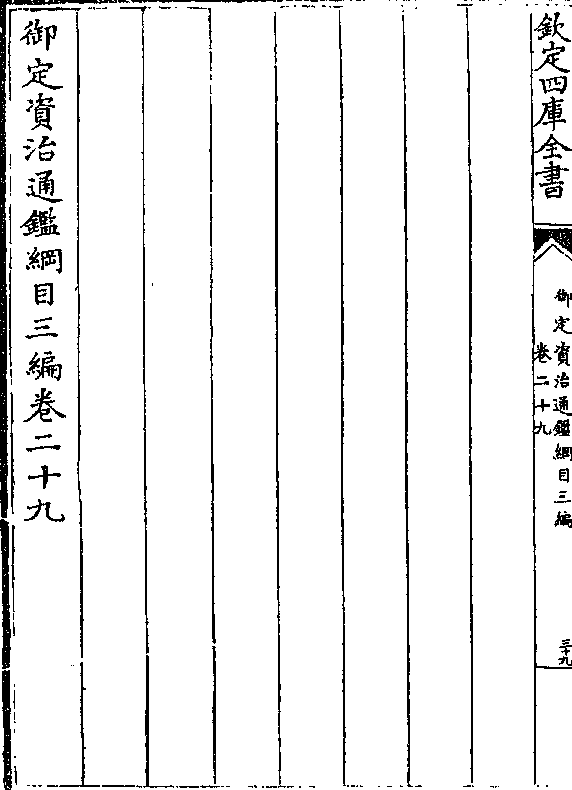 欽定四庫全書
御定資治通鑑綱目三編
卷二十九
三十九
御定資治通鑑綱目三編卷二十九